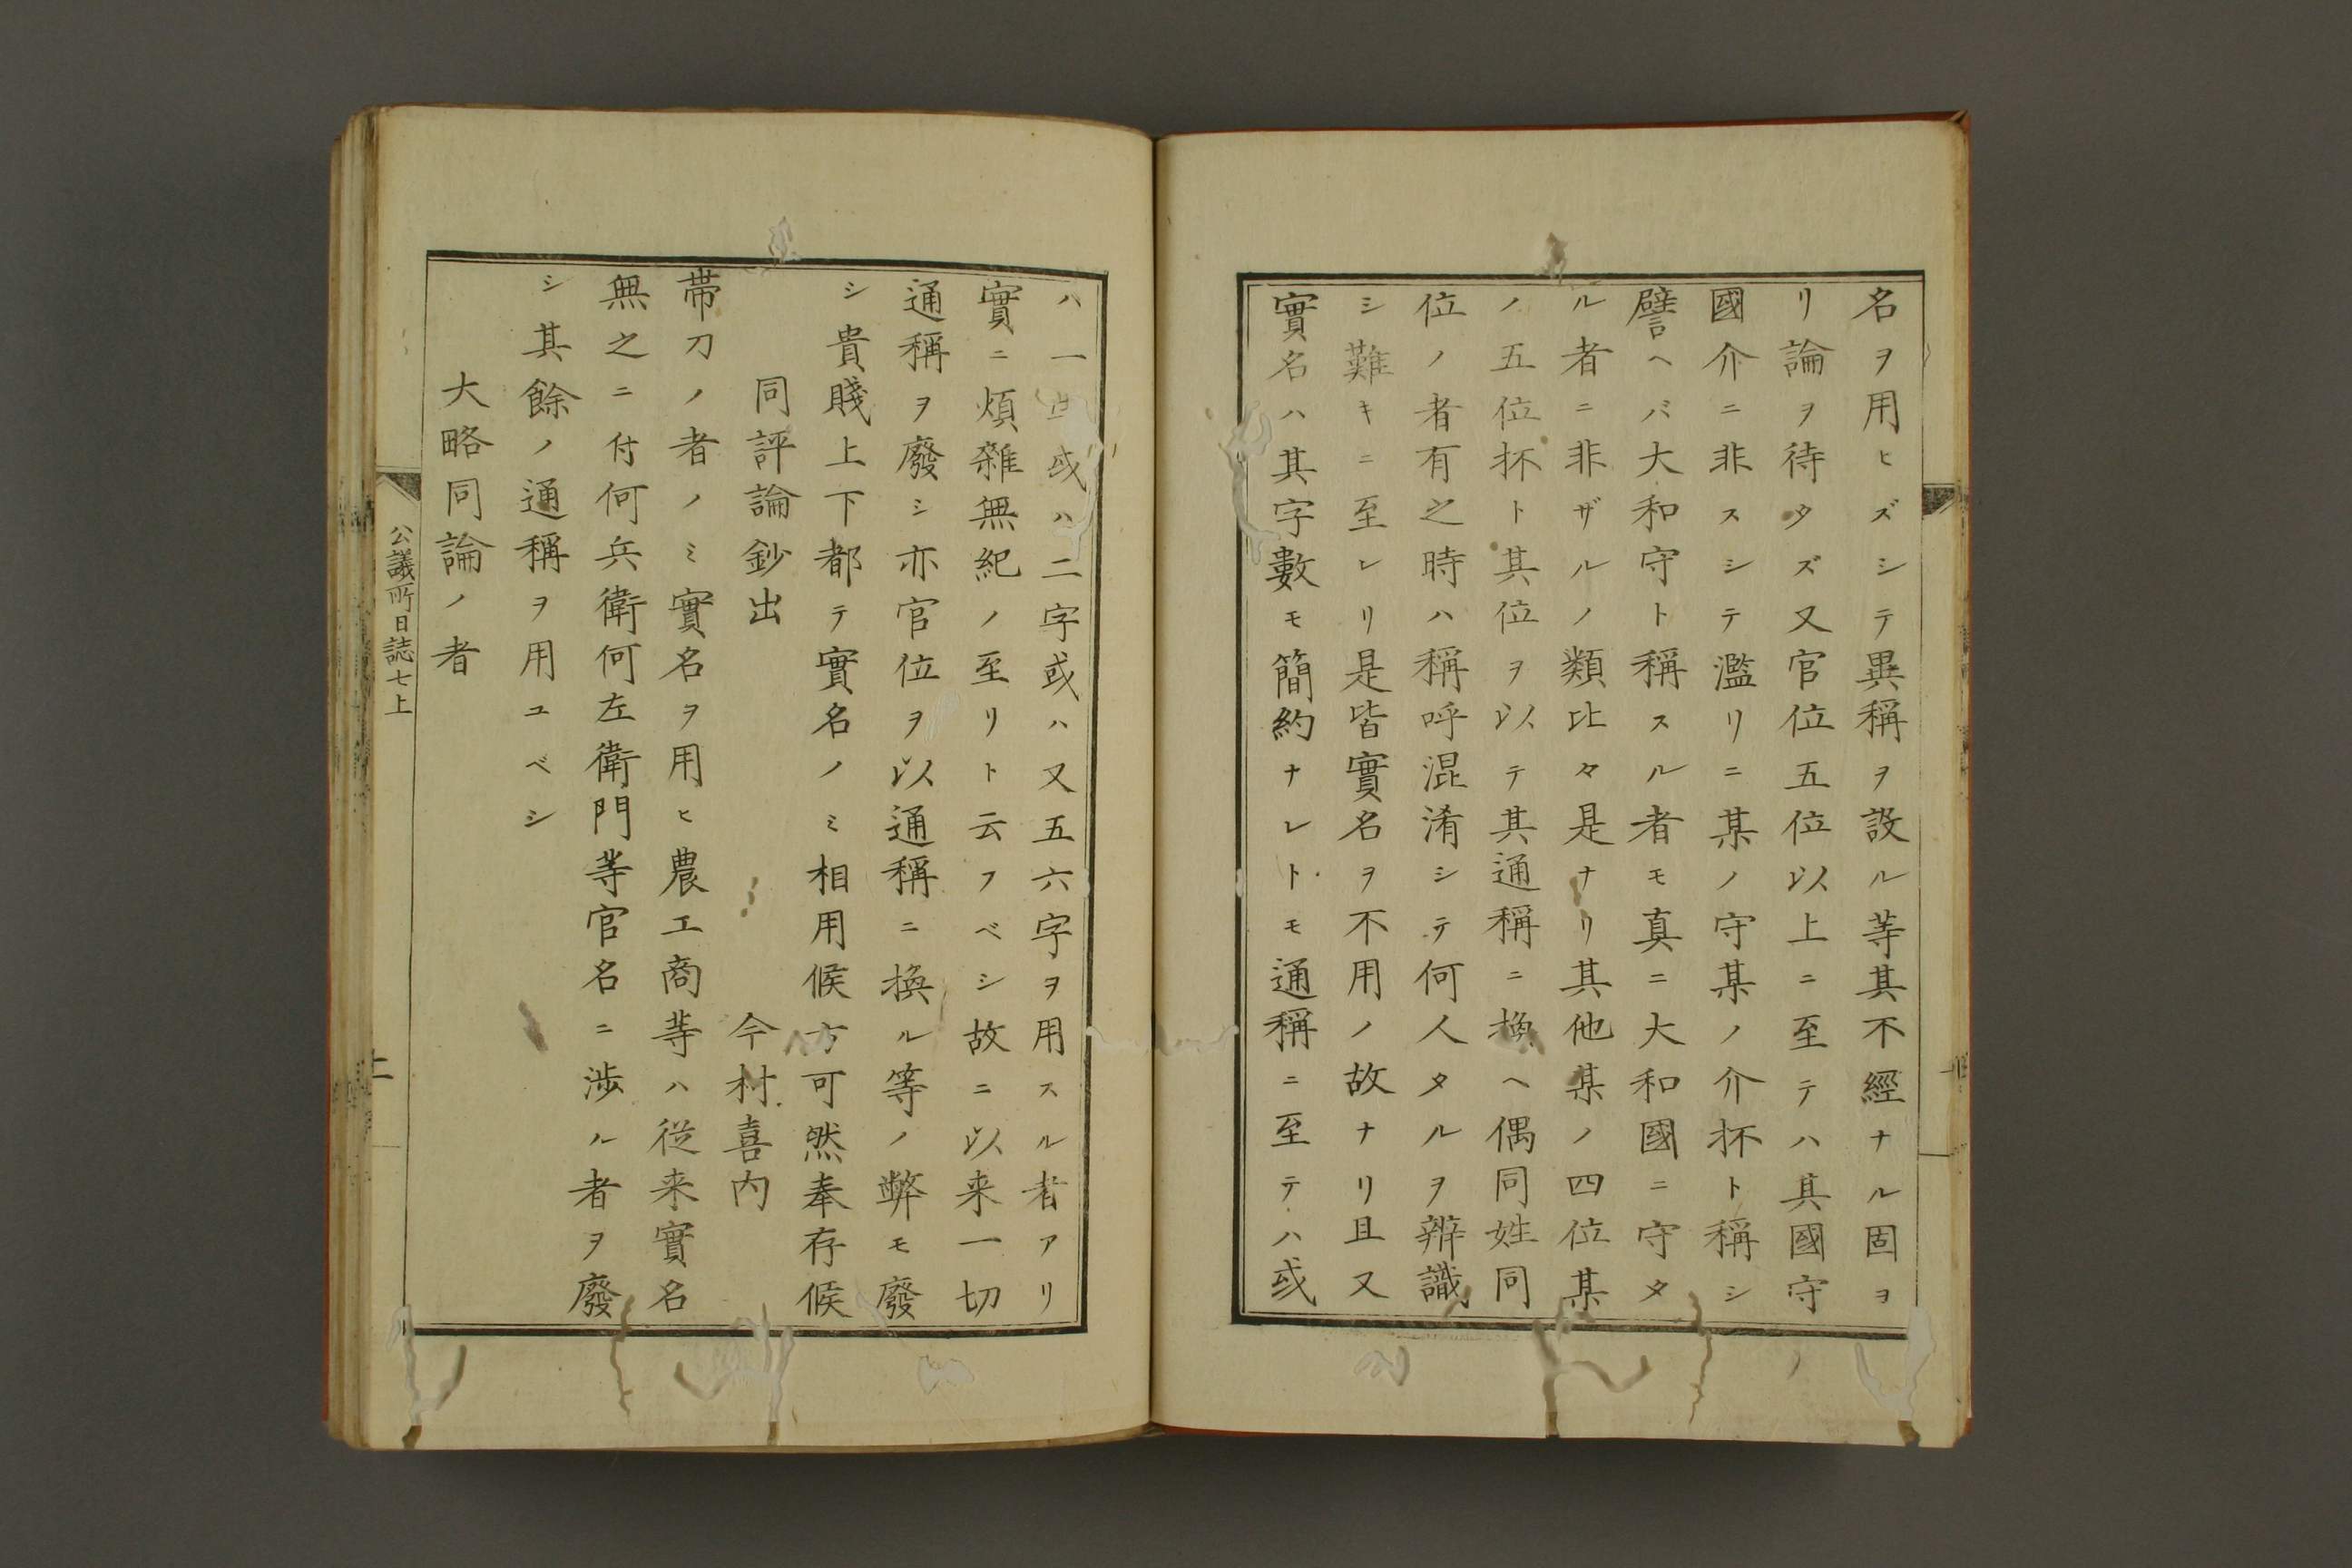 名ヲ用ヒズシテ異稱ヲ設ル等其不經ナル固ヨ
リ論ヲ待タズ又官位五位以上ニ至テハ其國守
國介ニ非スシテ濫リニ某ノ守某ノ介抔ト稱シ
譬ヘバ大和守ト稱スル者モ真ニ大和國ニ守タ
ル者ニ非ザルノ類比々是ナリ其他某ノ四位某
ノ五位抔ト其位ヲ以テ其通稱ニ換ヘ偶同姓同
位ノ者有之時ハ稱呼混淆シテ何人タルヲ辨識
シ難キニ至レリ是皆實名ヲ不用ノ故ナリ且又
實名ハ其字數モ簡約ナレトモ通稱ニ至テハ或
ハ一字或ハ二字或ハ又五六字ヲ用スル者アリ
實ニ煩雜無紀ノ至リト云フベシ故ニ以来一切
通稱ヲ廢シ亦官位ヲ以通稱ニ換ル等ノ弊モ廢
シ貴賤上下都テ實名ノミ相用候方可然奉存候
同評論鈔出
今村喜内
帯刀ノ者ノミ實名ヲ用ヒ農工商等ハ従来實名
無之ニ付何兵衛何左衛門等官名ニ渉ル者ヲ廢
シ其餘ノ通稱ヲ用ユベシ
大略同論ノ者
公議所日誌七上